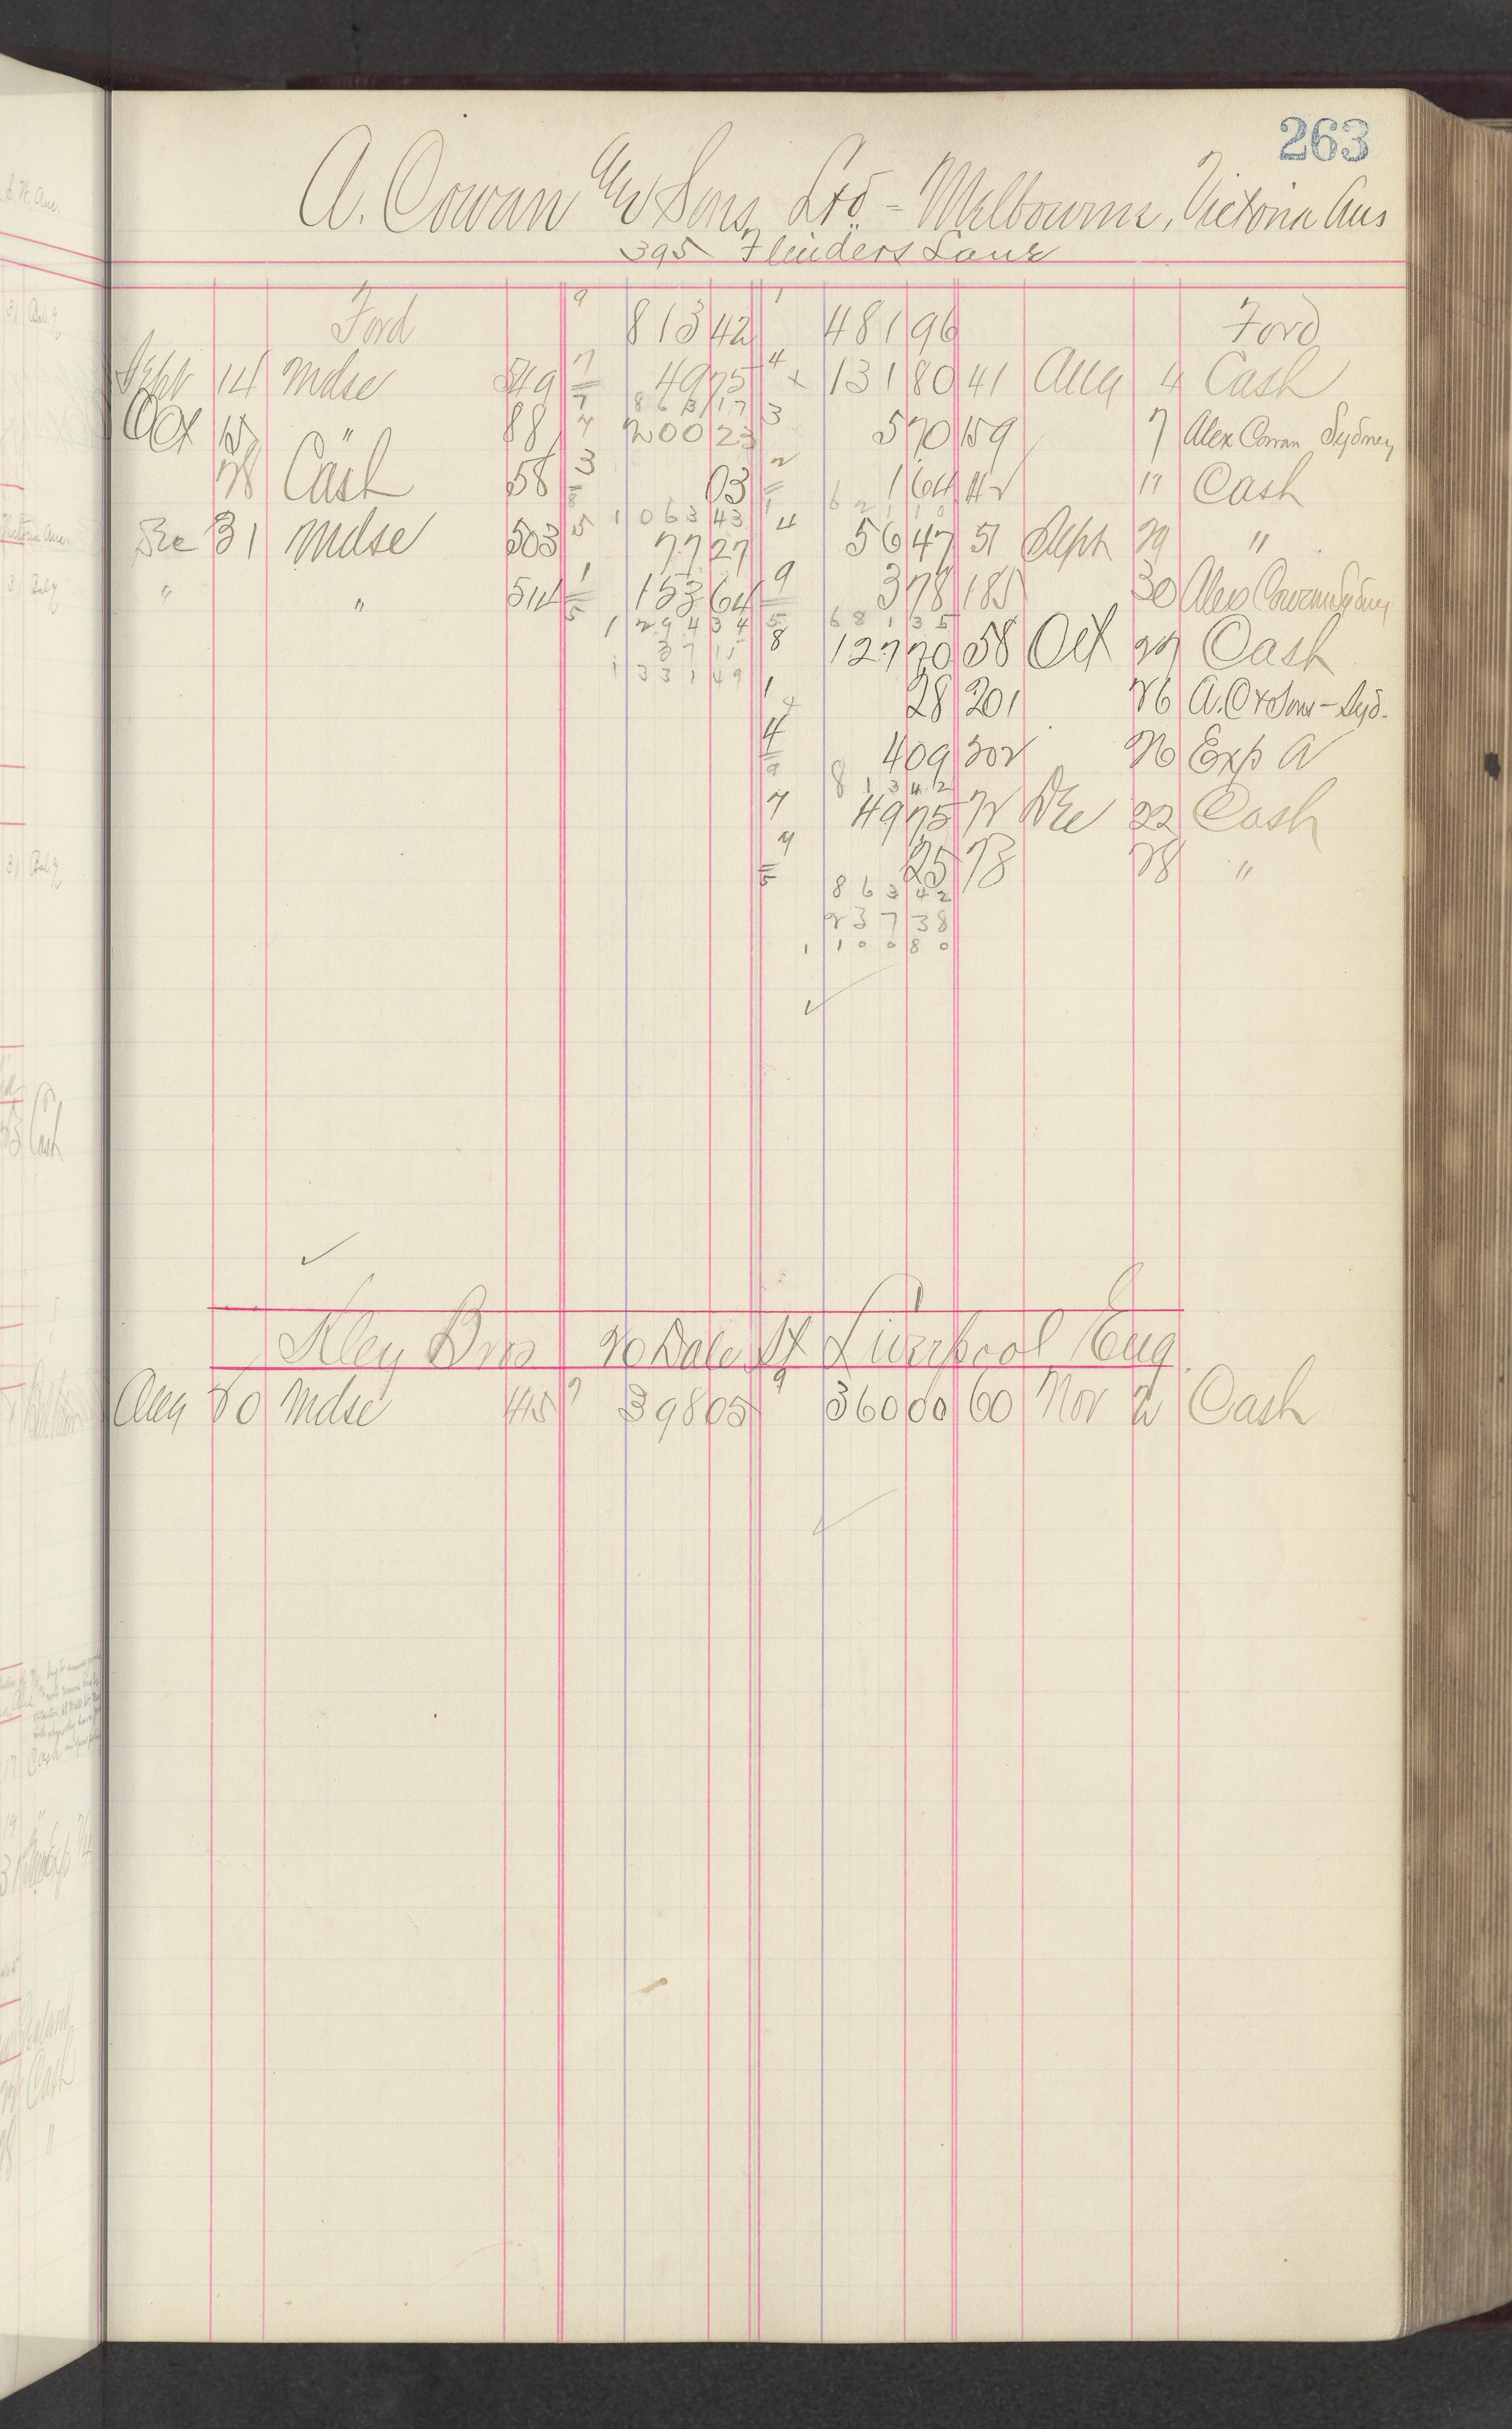 263
A. Cowan & Sons, Ltd - Melbourne, Victoria Aus
395 Flinders Lane
Ford 9 813 42 1 481 96 Ford
Sept 14 Mdse 549 7 49 75 4 x 131 80 41 Aug 4 Cash
7 863 17
Oct 15 " 88 7 200 23 3 5 70 159 7 Alex Cowan Sydney
28 Cash 58 3 03 2 1 64 42 " Cash
8 1063 43 1 621 10
Dec 31 Mdse 503 5 77 27 4 56 47 51 Sept 29 "
" " 514 1 153 64 9 3 78 185 30 Alex Cowan Sydney
5 1294 34 5 681 35
37 15 8 127 70 58 Oct 27 Cash
1331 49
1 28 201 26 A. C & Sons - Syd.
4 4 09 302 26 Exp A
9 813 42
7 49 75 72 Dec 22 Cash
7 25 73 28 "
5 863 42
237 38
1100 80
Kley Bros 20 Dale St Liverpool Eng
Aug 30 Mdse 415 7 398 05 9 360 00 60 Nov 2 Cash